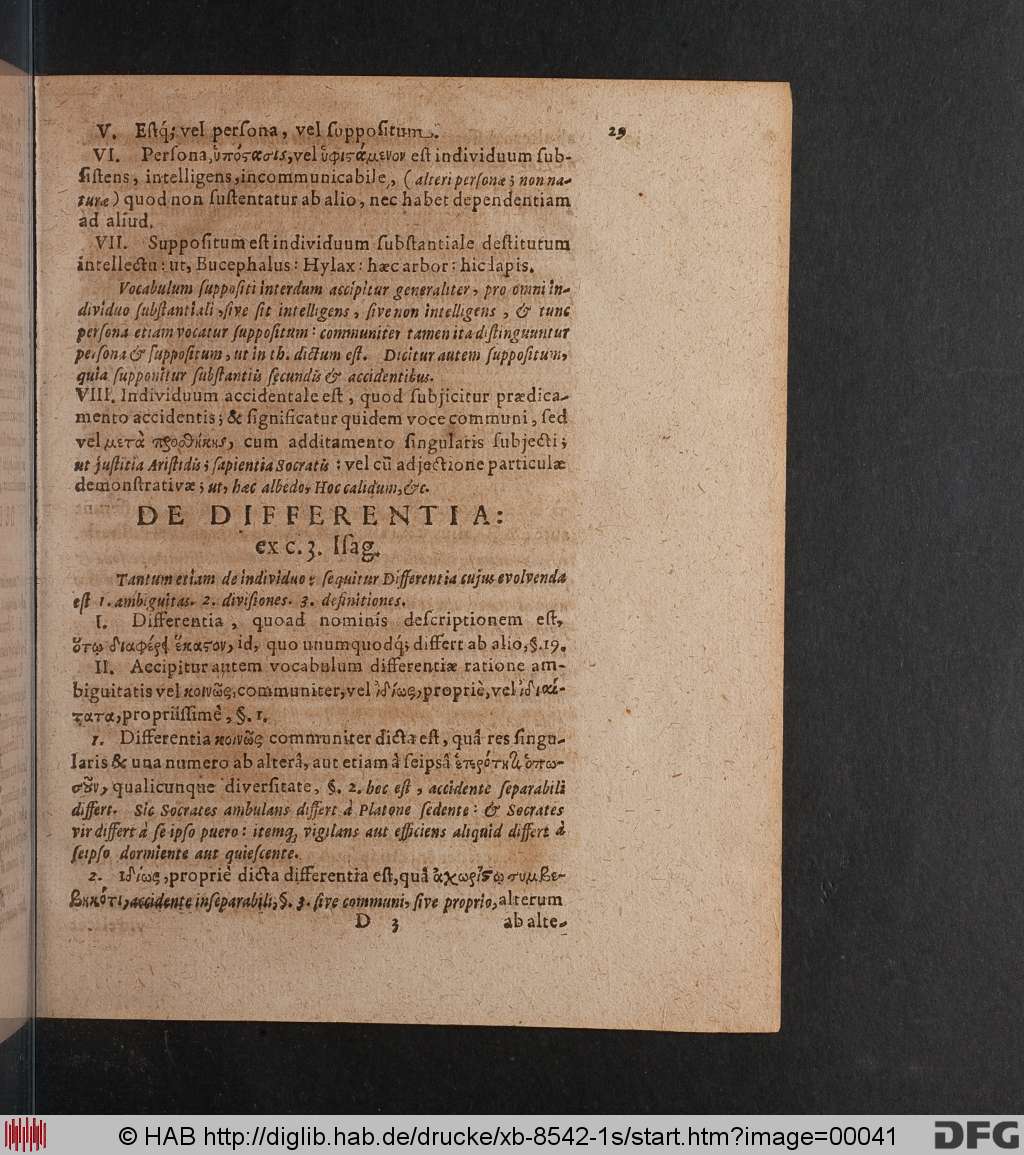 29
V. Eſtq́; vel perſona, vel ſuppoſitum.
VI. Perſona, ὑπόϛασις, vel ὑφιϛάμενον eſt individuum ſub-
ſiſtens, intelligens, incommunicabile, (alteri perſonæ; non na-
turæ) quod non ſuſtentatur ab alio, nec habet dependentiam
ad aliud.
VII. Suppoſitum eſt individuum ſubſtantiale deſtitutum
intellectu: ut, Bucephalus: Hylax: hæc arbor: hic lapis.
Vocabulum ſuppoſiti interdum accipitur generaliter, pro omni in-
dividuo ſubſtantiali, ſive ſit intelligens, ſive non intelligens, & tunc
perſona etiam vocatur ſuppoſitum: communiter tamen ita diſtinguuntur
perſona & ſuppoſitum, ut in th. dictum eſt. Dicitur autem ſuppoſitum,
quia ſupponitur ſubſtantiis ſecundis & accidentibus.
VIII. Individuum accidentale eſt, quod ſubjicitur prædica-
mento accidentis; & ſignificatur quidem voce communi, ſed
vel μετὰ προσθήκης, cum additamento ſingularis ſubjecti;
ut juſtitia Ariſtidis; ſapientia Socratis: vel cū adjectione particulæ
demonſtrativæ; ut, hæc albedo, Hoc calidum, &c.
DE DIFFERENTIA:
ex c. 3. Iſag.
Tantum etiam de individuo: ſequitur Differentia cujus evolvenda
eſt 1. ambiguitas. 2. diviſiones. 3. definitiones.
I. Differentia, quoad nominis deſcriptionem eſt,
ὅτῳ διαφέρει ἕκαϛον, id, quo unumquodq́; differt ab alio, §. 19.
II. Accipitur autem vocabulum differentiæ ratione am-
biguitatis vel κοινῶς, communiter, vel ἰδίως, propriè, vel ἰδιαί-
τατα, propriiſſimè, §. 1.
1. Differentia κοινῶς communiter dicta eſt, quâ res ſingu-
laris & una numero ab alterâ, aut etiam â ſeipsâ ἑτερότητι ὁπω-
σοῦν, qualicunque diverſitate, §. 2. hoc eſt, accidente ſeparabili
differt. Sic Socrates ambulans differt à Platone ſedente: & Socrates
vir differt à ſe ipſo puero: itemq, vigilans aut efficiens aliquid differt à
ſeipſo dormiente aut quieſcente.
2. ἰδίως, propriè dicta differentia eſt, quâ ἀχωρίϛῳ συμβε-
βηκότι, accidente inſeparabili, §. 3. ſive communi, ſive proprio, alterum
D 3 ab alte-
© HAB http://diglib.hab.de/drucke/xb-8542-1s/start.htm?image=00041
DFG